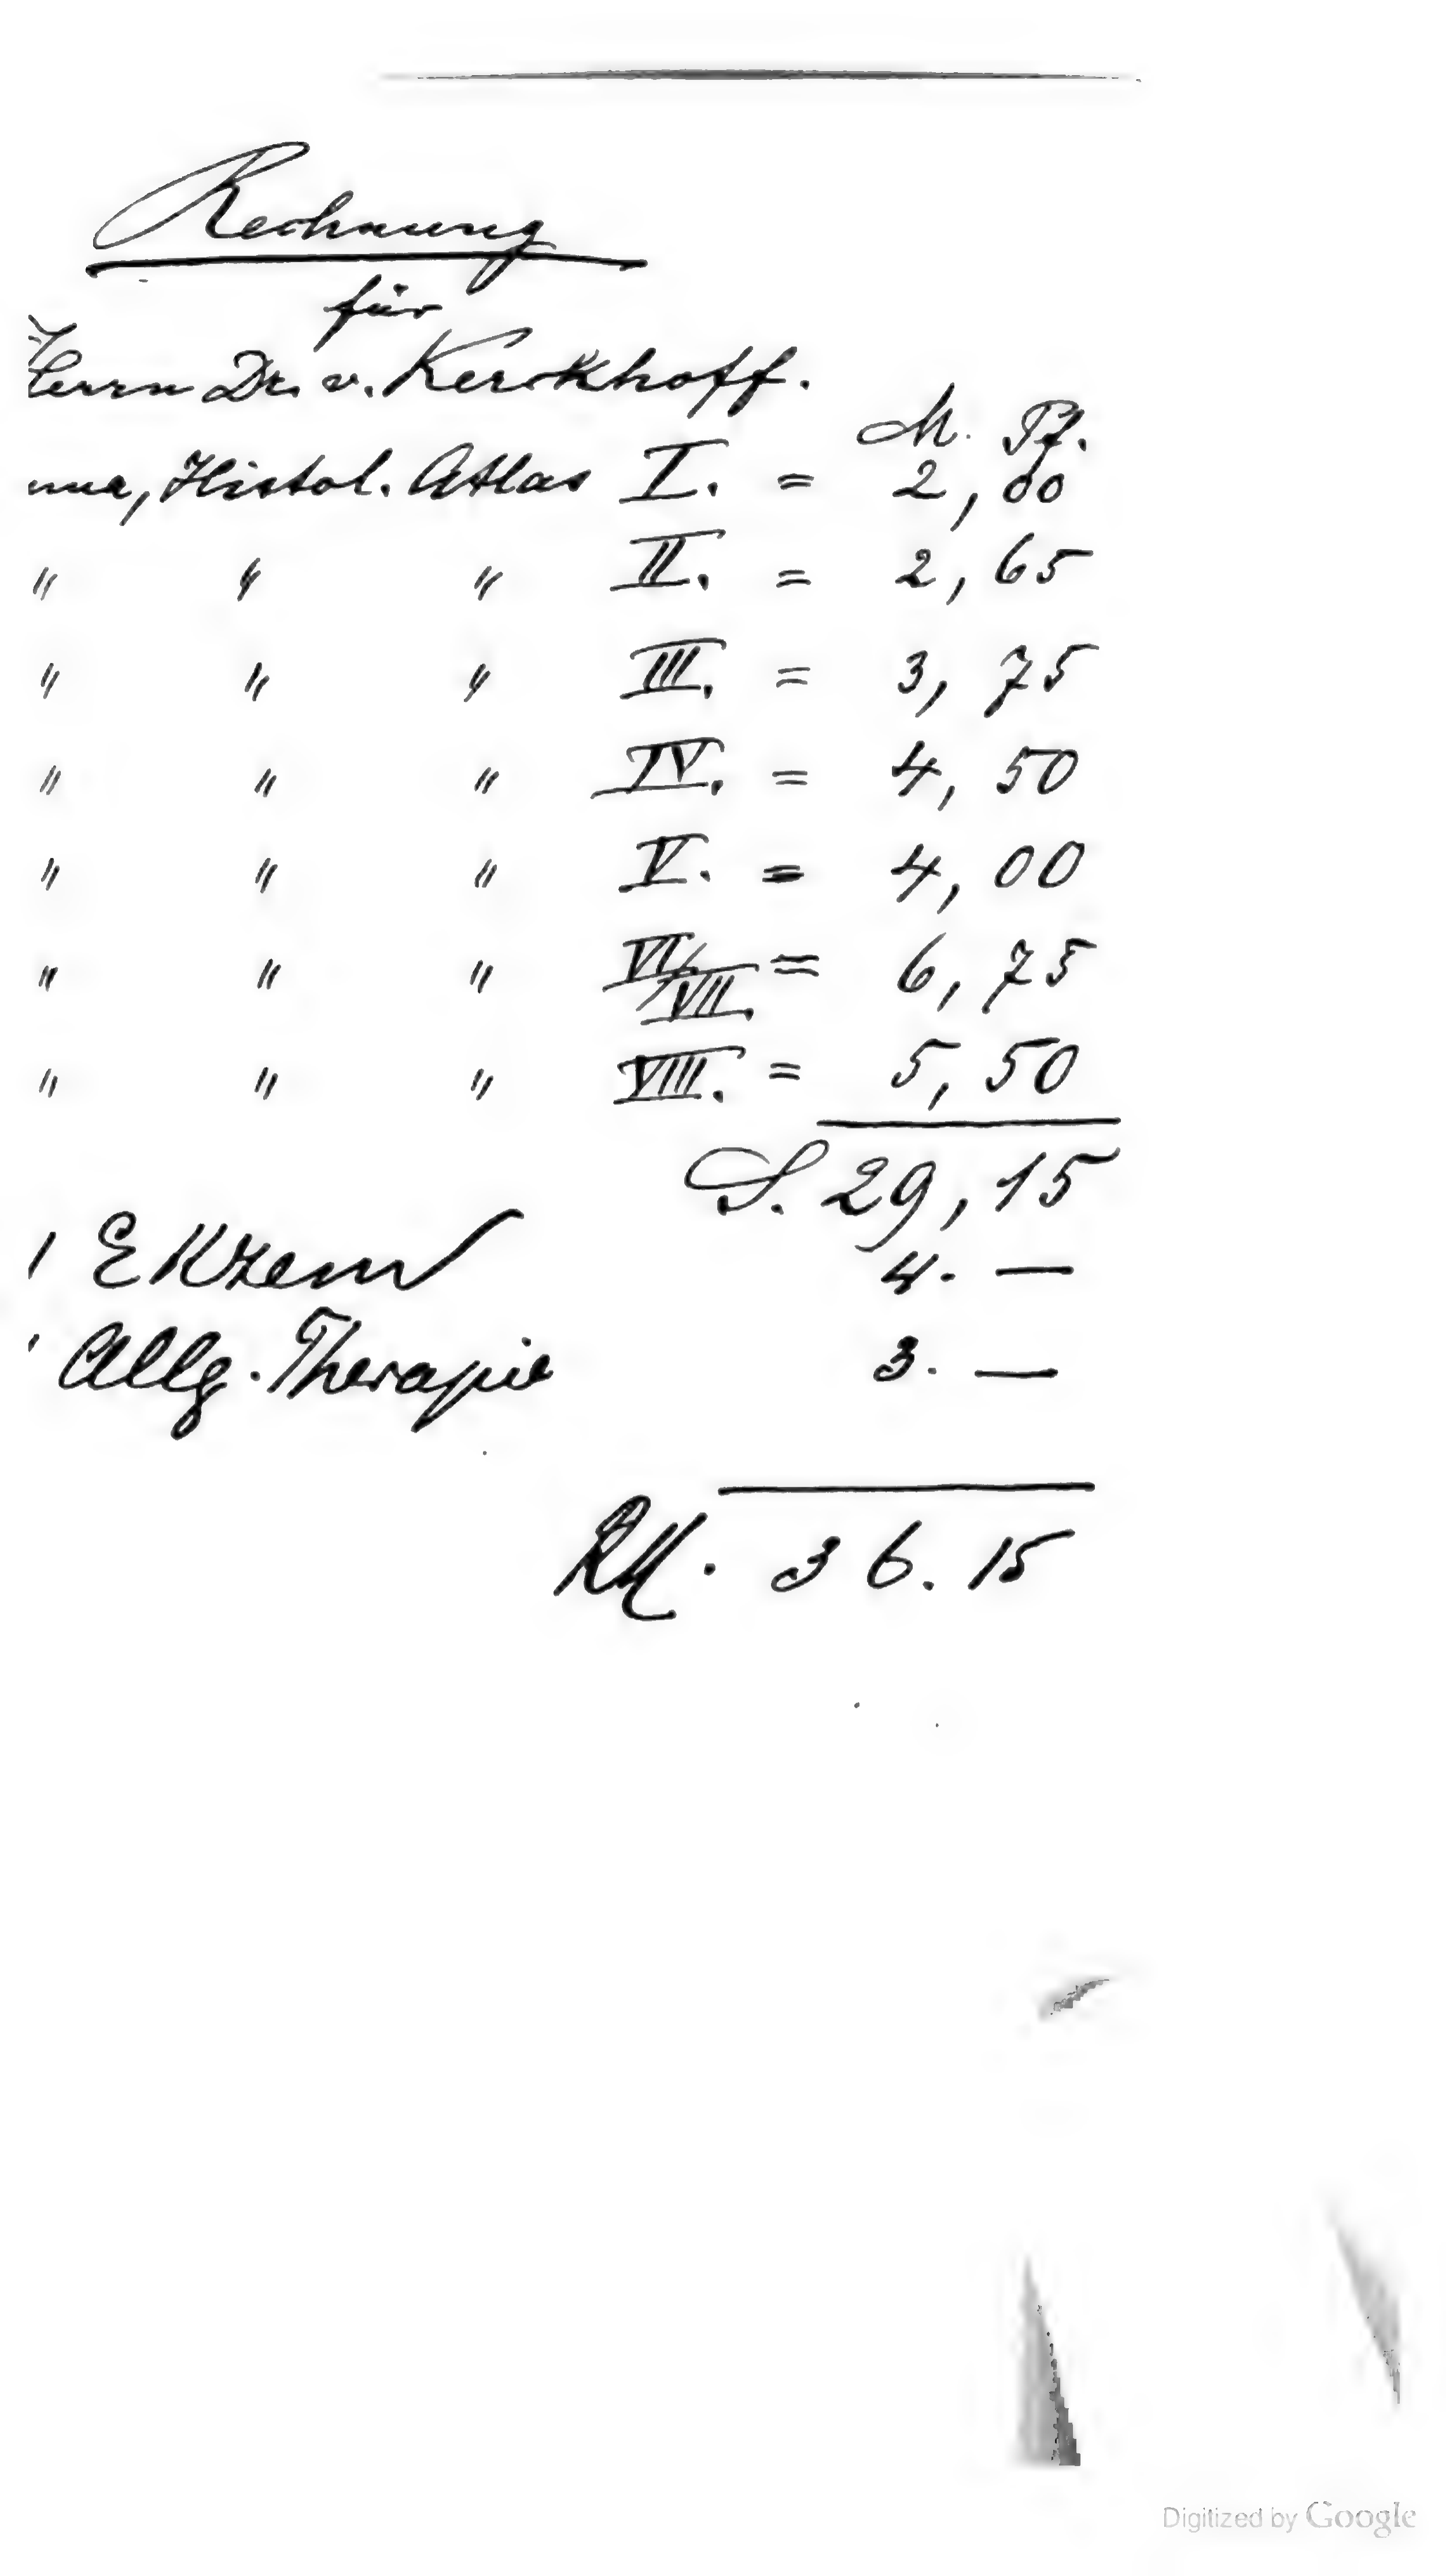 Rechnung
für
Herrn Dr. v. Kerckhoff.
M. Pf.
nna, Histol. Atlas I. = 2,00
" " " II. = 2,65
" " " III. = 3,75
" " " IV. = 4,50
" " " V. = 4,00
" " " VI./VII. = 6,75
" " " VIII. = 5,50
S. 29,15
1 Ekzem 4. —
" Allg. Therapie 3. —
RM. 36.15
Digitized by Google